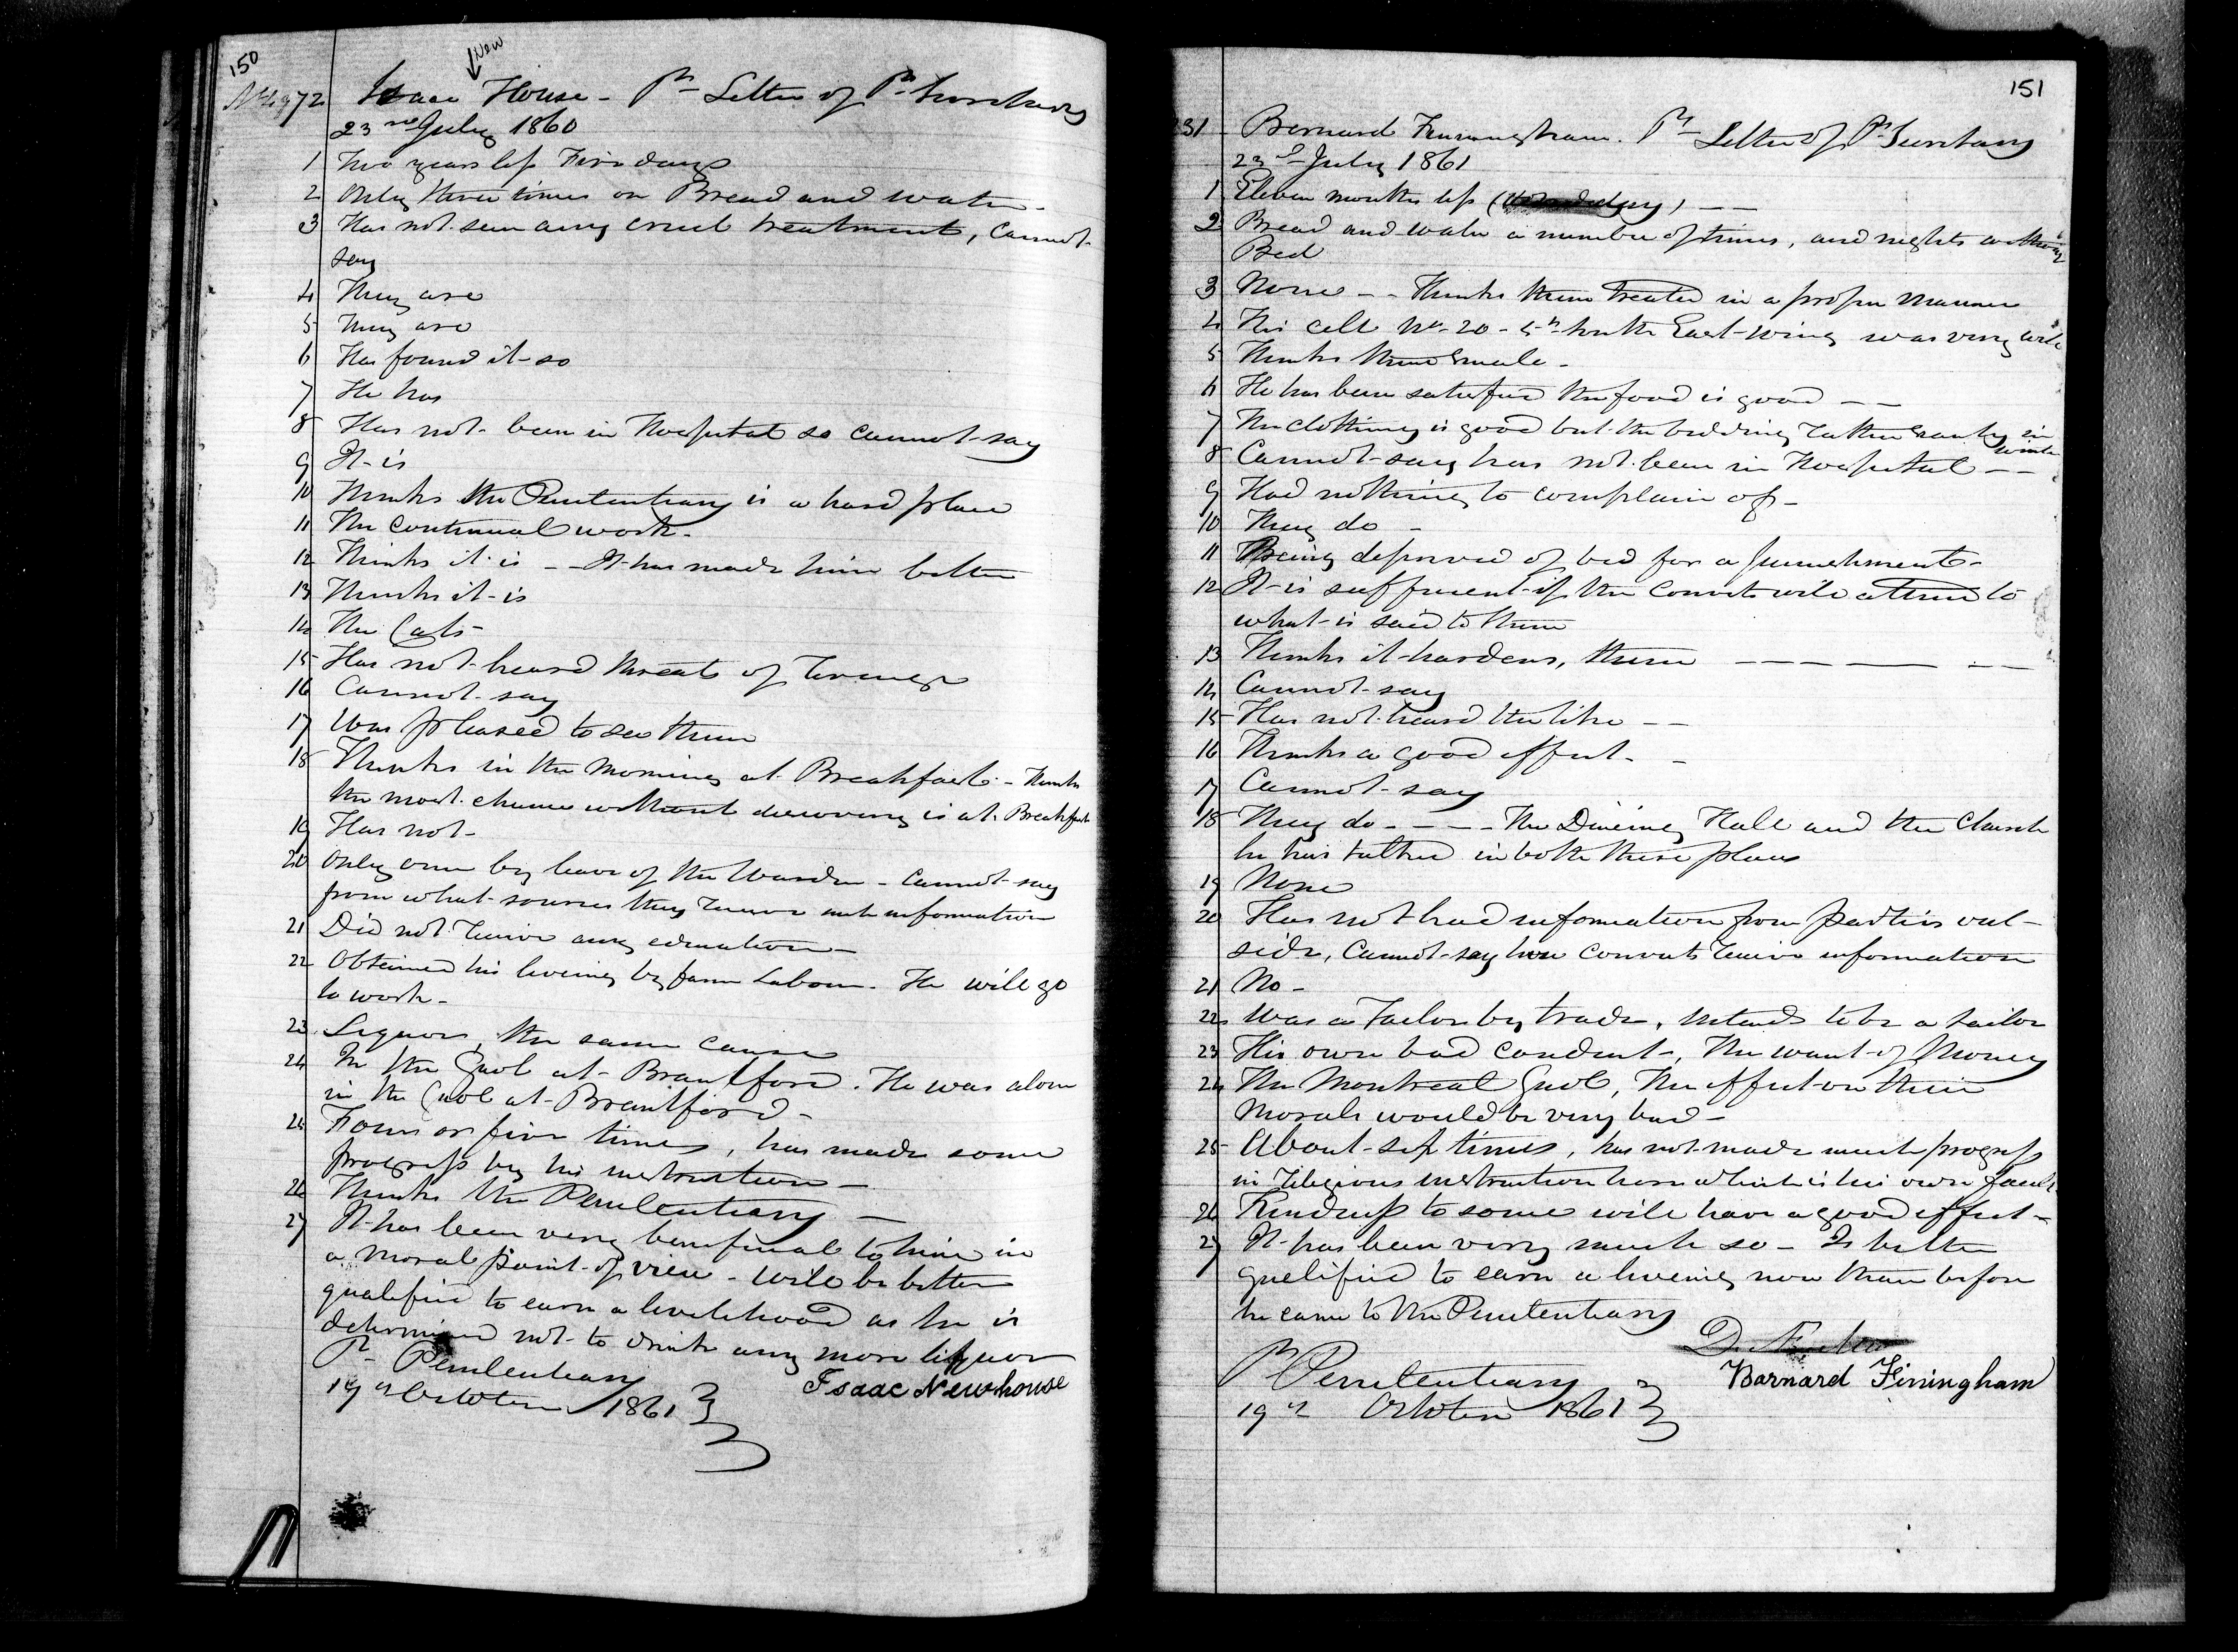 150
New
Isaac House - Pr Letter of Pr Secretary
23rd July 1860
1 Two years less Five days
2 Only three times on Bread and water -
3 Has not seen any cruel treatment, Cannot
say
4 They are
5 They are
6 Has found it so
7 He has
8 Has not been in Hospital so cannot say
9 It is
10 Thinks the Penitentiary is a hard place
11 The continual work -
12 Thinks it is - - It has made him better
13 Thinks it is
14 The Cats
15 Has not heard threats of revenge
16 Cannot say
17 Was pleased to see them
18 Thinks in the Morning at Breakfast - Thinks
the most chance without discovery is at Breakfast
19 Has not -
20 Only one by leave of the Warden - Cannot say
from what sources they receive such information
21 Did not receive any education
22 Obtained his liveing by farm Labour. He will go
to work -
23 Liquor, the same cause
24 In the Gaol at Brantford. He was alone
in the Gaol at Brantford -
25 Four or five times, has made some
progress by his instruction -
26 Thinks the Penitentiary -
27 It has been very beneficial to him in
a moral point of view - will be better
qualified to earn a livelihood as he is
determined not to drink any more liquor
Pr Penitentiary
19th October 1861 Isaac Newhouse
151
Bernard Finningham. Pr Letter of Pr Secretary
23rd July 1861
1 Eleven months less - -
2 Bread and water a number of times, and nights without
Bed
3 None - - Thinks them treated in a proper manner
4 His cell No 20 - 5th South East wing was very cold
5 Thinks them small -
6 He has been satisfied the food is good - -
7 The clothing is good but the bedding rather scanty in
winter
8 Cannot say has not been in Hospital - -
9 Had nothing to complain of -
10 They do -
11 Being deprived of bed for a punishment -
12 It is sufficient if the Convicts will attend to
what is said to them
13 Thinks it hardens, them - - - - - -
14 Cannot say
15 Has not heard the like - -
16 Thinks a good effect - -
17 Cannot say
18 They do - - - - The Dineing Hall and the Church
he has talked in both these places
19 None
20 Has not had information from parties out-
side, Cannot say how Convicts receive information
21 No -
22 Was a Tailor by trade, intends to be a sailor
23 His own bad conduct -, The want of Money
24 The Montreal Gaol, The effect on their
Morals would be very bad -
25 About six times, has not made much progress
in religious instruction here which is his own fault
26 Kindness to some will have a good effect -
27 It has been very much so - Is better
qualified to earn a liveing now than before
he came to the Penitentiary
Pr Penitentiary Barnard Finingham
19th October 1861